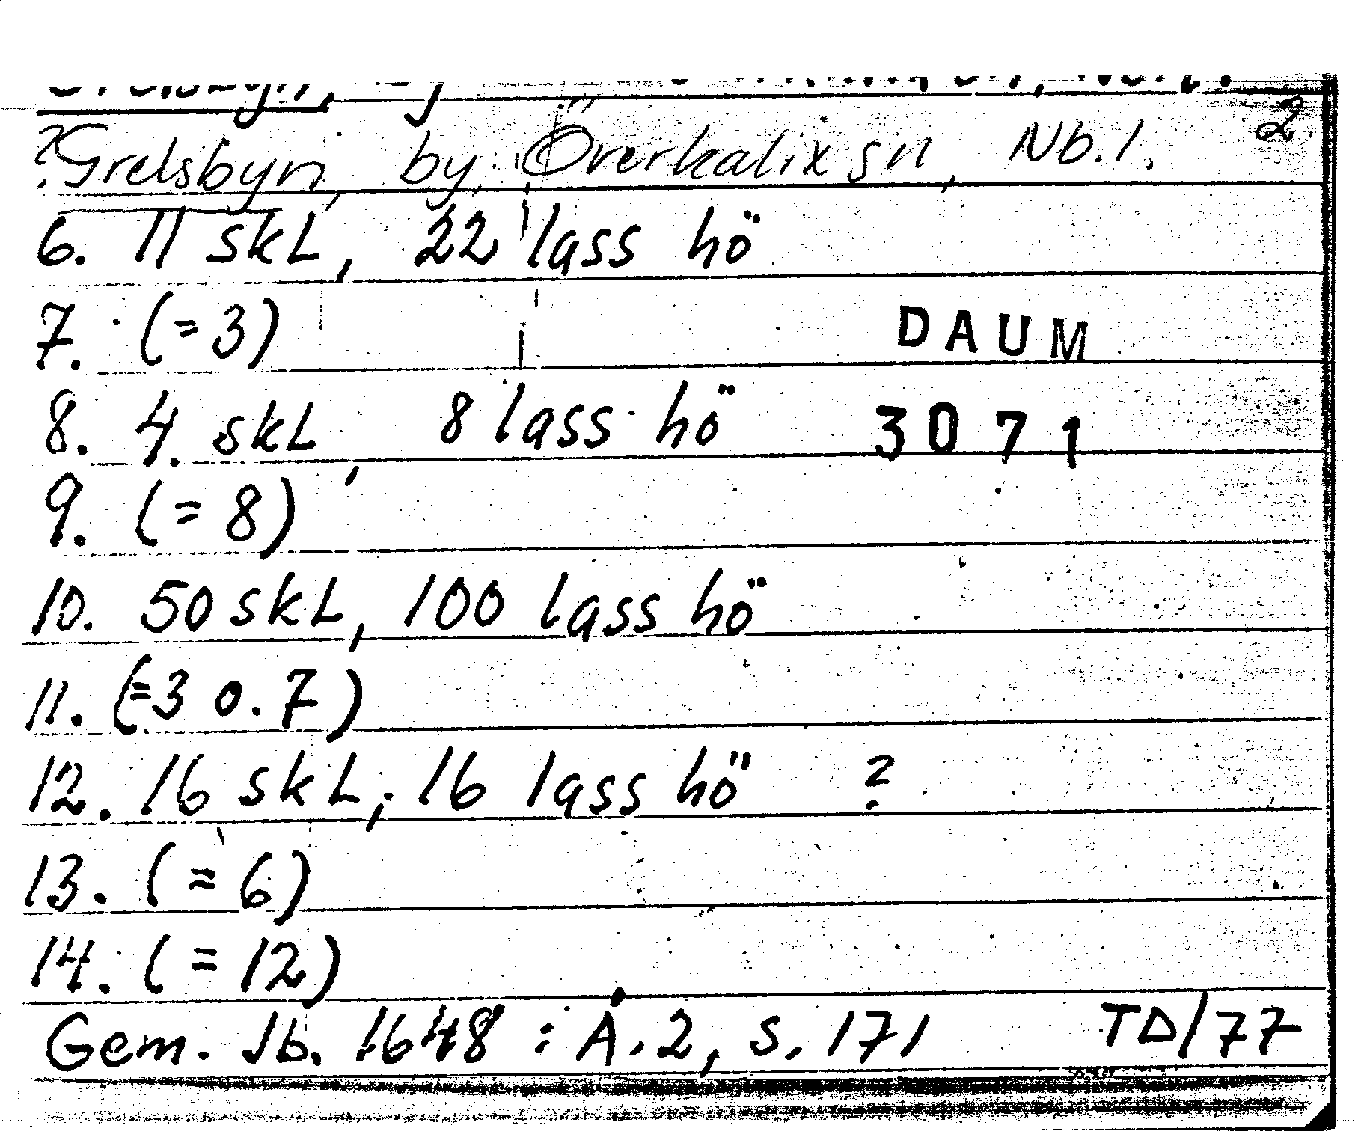 ?Grelsbyn, by, Överkalix sn, Nb.l. 2
6. 11 skL, 22 lass hö
7. (=3) DAUM
8. 4. skL, 8 lass hö 3071
9. (=8)
10. 50 skL, 100 lass hö
11. (=3 o. 7)
12. 16 skL, 16 lass hö ?
13. (=6)
14. (=12)
Gem. Jb. 1648 : Å.2, s. 171 TD/77